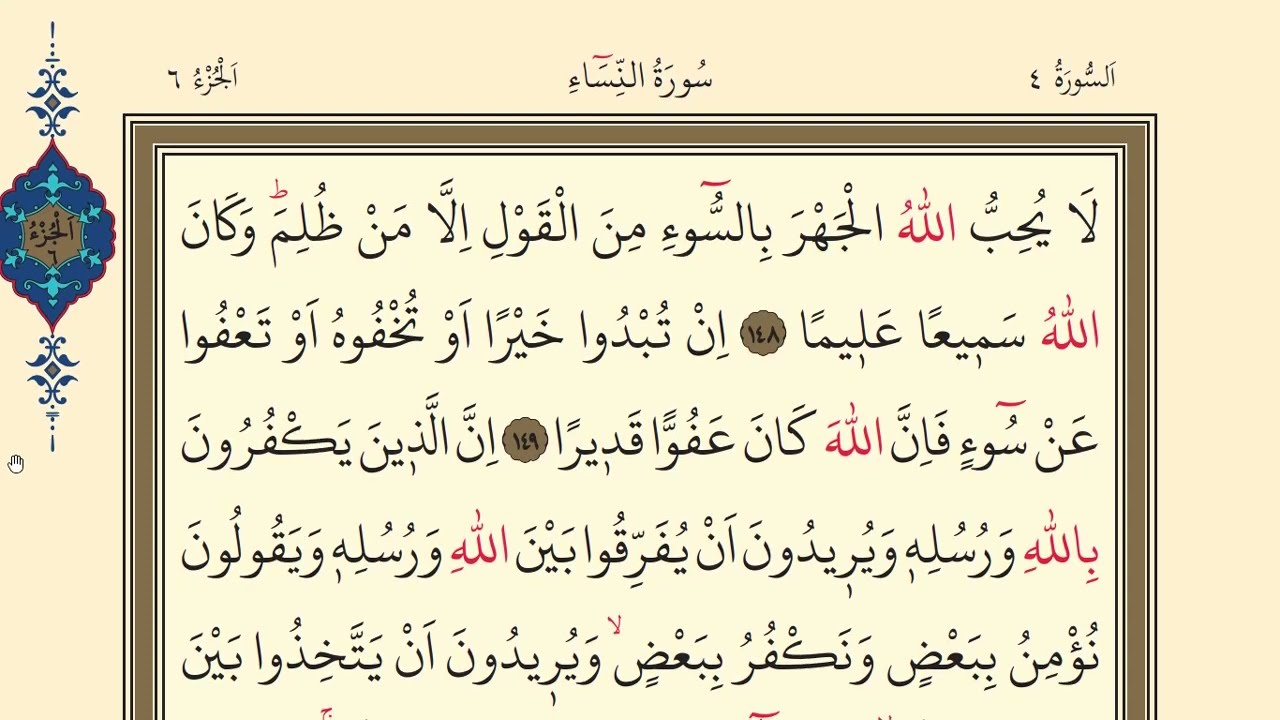 اَلسُّورَةُ ٤
سُورَةُ النِّسَٓاءِ
اَلْجُزْءُ ٦
اَلْجُزْءُ
٦
لَا يُحِبُّ اللّٰهُ الْجَهْرَ بِالسُّٓوءِ مِنَ الْقَوْلِ اِلَّا مَنْ ظُلِمَؕ وَكَانَ
اللّٰهُ سَمٖيعًا عَلٖيمًا ١٤٨ اِنْ تُبْدُوا خَيْرًا اَوْ تُخْفُوهُ اَوْ تَعْفُوا
عَنْ سُٓوءٍ فَاِنَّ اللّٰهَ كَانَ عَفُوًّا قَدٖيرًا ١٤٩ اِنَّ الَّذٖينَ يَكْفُرُونَ
بِاللّٰهِ وَرُسُلِهٖ وَيُرٖيدُونَ اَنْ يُفَرِّقُوا بَيْنَ اللّٰهِ وَرُسُلِهٖ وَيَقُولُونَ
نُؤْمِنُ بِبَعْضٍ وَنَكْفُرُ بِبَعْضٍۙ وَيُرٖيدُونَ اَنْ يَتَّخِذُوا بَيْنَ